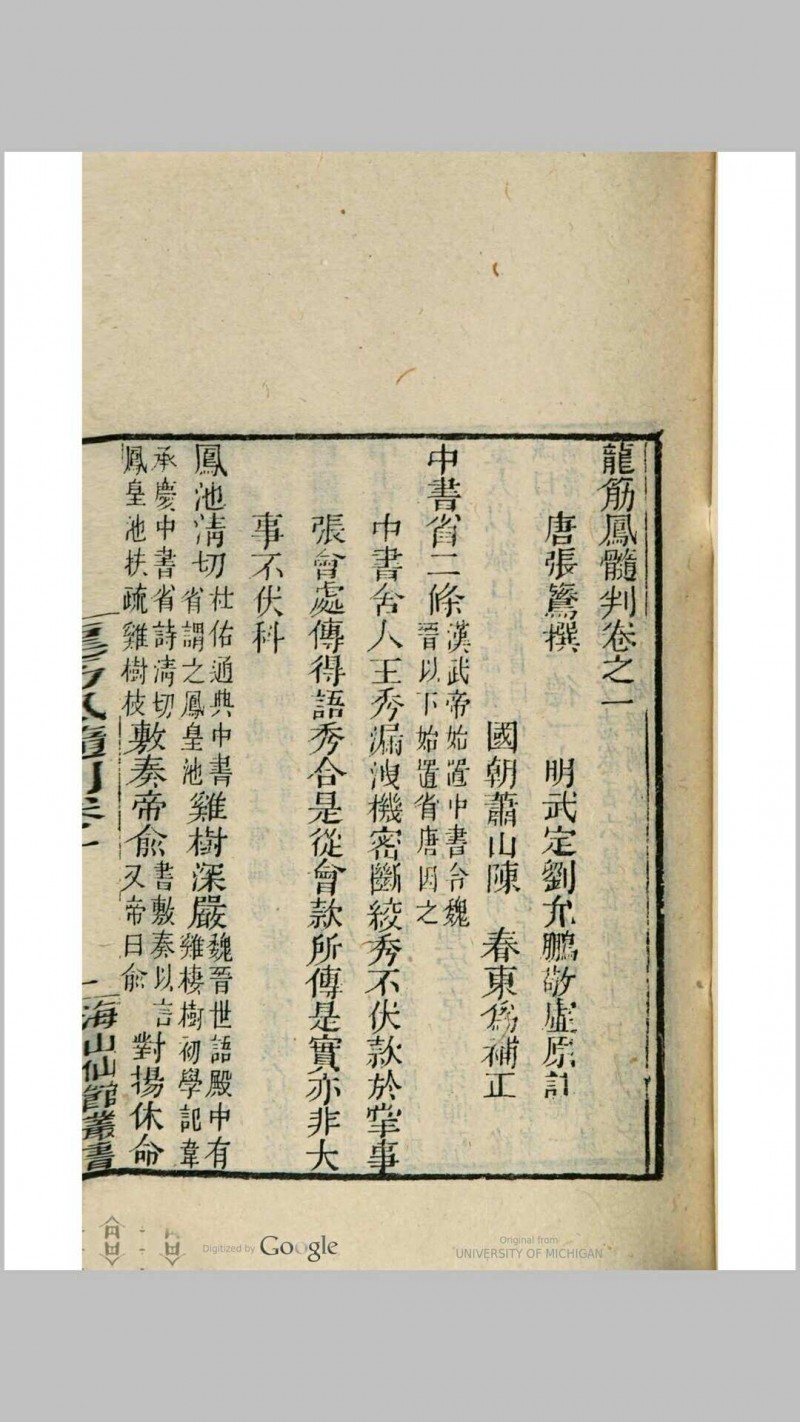 龍筋鳳髓判卷之一
唐張鷟撰　明武定劉允鵬敬虛原註
國朝蕭山陳　春東爲補正
中書省二條漢武帝始置中書令魏晉以下始置省唐因之
中書舍人王秀漏洩機密斷絞秀不伏款於掌事
張會處傳得語秀合是從會款所傳是實亦非大
事不伏科
鳳池清切杜佑通典中書省謂之鳳皇池雞樹深嚴魏晉世語殿中有雞棲樹初學記韋
承慶中書省詩清切鳳皇池扶疏雞樹枝敷奏帝俞書敷奏以言又帝曰俞對揚休命
海山仙館叢書
Digitized by Google
Original from
UNIVERSITY OF MICHIGAN